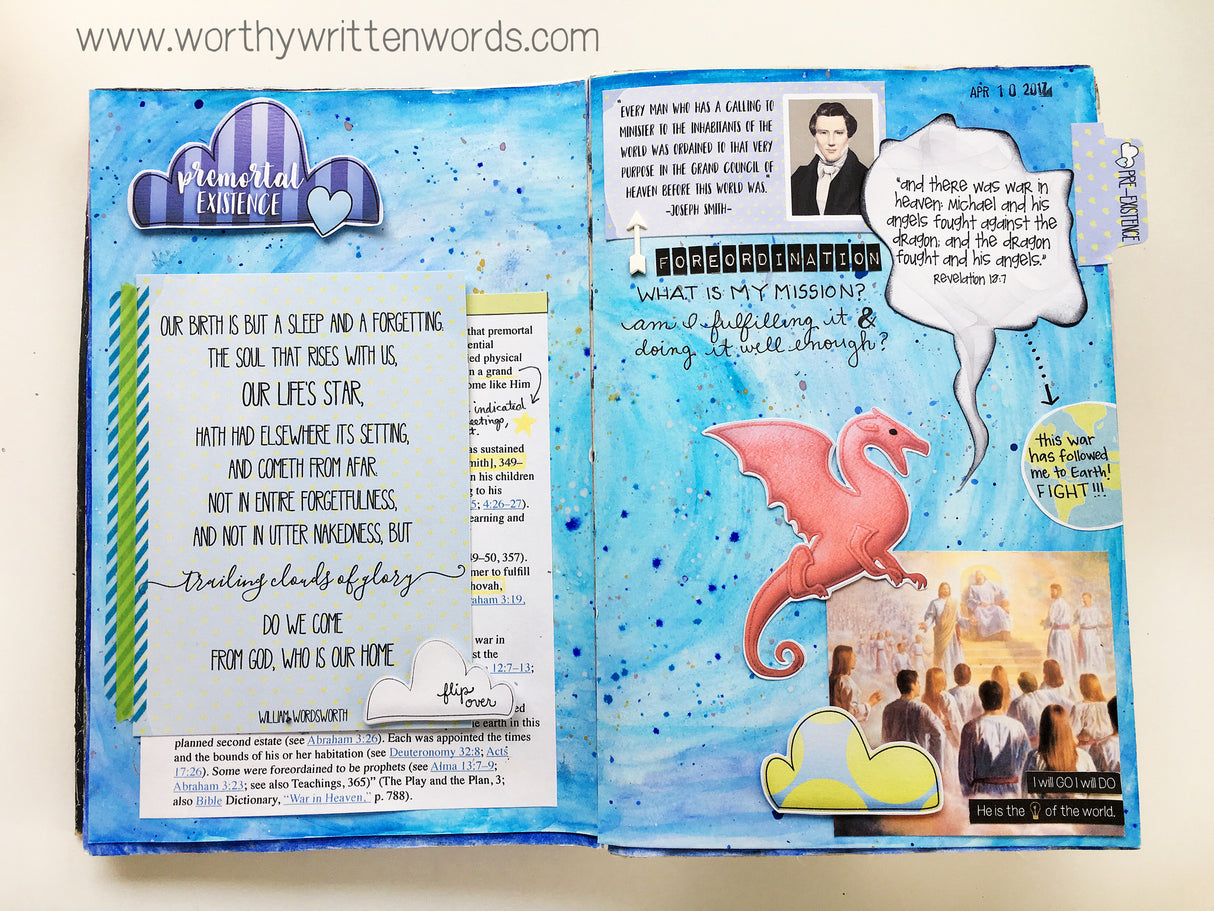 www.worthywrittenwords.com
premortal
EXISTENCE
OUR BIRTH IS BUT A SLEEP AND A FORGETTING.
THE SOUL THAT RISES WITH US,
OUR LIFE'S STAR,
HATH HAD ELSEWHERE ITS SETTING,
AND COMETH FROM AFAR.
NOT IN ENTIRE FORGETFULNESS,
AND NOT IN UTTER NAKEDNESS, BUT
trailing clouds of glory
DO WE COME
FROM GOD, WHO IS OUR HOME
WILLIAM WORDSWORTH
flip
over
that premortal
ential
ed physical
n a grand
ome like Him
indicated
eetings,
t.
as sustained
mith], 349–
n his children
g to his
5; 4:26–27).
earning and
49–50, 357).
mer to fulfill
hovah,
raham 3:19,
war in
st the
12:7–13;
ed
he earth in this
planned second estate (see Abraham 3:26). Each was appointed the times
and the bounds of his or her habitation (see Deuteronomy 32:8; Acts
17:26). Some were foreordained to be prophets (see Alma 13:7–9;
Abraham 3:23; see also Teachings, 365)" (The Play and the Plan, 3;
also Bible Dictionary, "War in Heaven," p. 788).
APR 10 2017
"EVERY MAN WHO HAS A CALLING TO
MINISTER TO THE INHABITANTS OF THE
WORLD WAS ORDAINED TO THAT VERY
PURPOSE IN THE GRAND COUNCIL OF
HEAVEN BEFORE THIS WORLD WAS."
-JOSEPH SMITH-
FOREORDINATION
WHAT IS MY MISSION?
am I fulfilling it &
doing it well enough?
"and there was war in
heaven: Michael and his
angels fought against the
dragon; and the dragon
fought and his angels."
Revelation 12:7
PRE-EXISTENCE
this war
has followed
me to Earth!
FIGHT!!!
I will GO I will DO
He is the of the world.